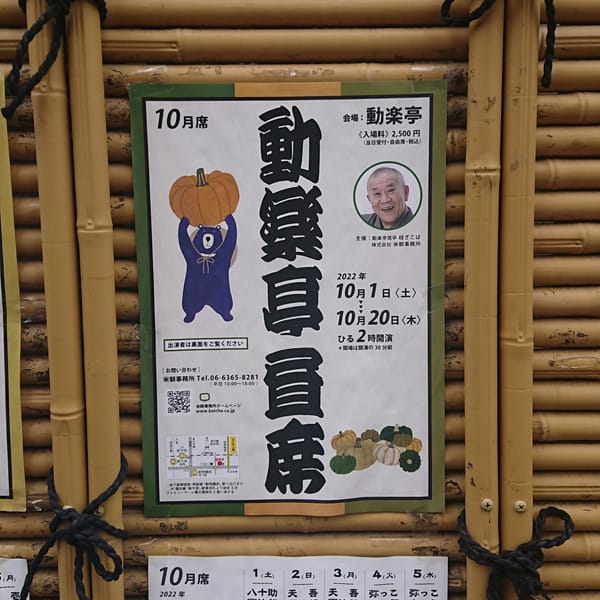 10月席
動楽亭昼席
会場：動楽亭
《入場料》2,500円
（当日受付・自由席・税込）
主催：動楽亭席亭 桂ざこば
株式会社 米朝事務所
2022年
10月1日〈土〉
10月20日〈木〉
ひる2時開演
＊開場は開演の30分前
出演者は裏面をご覧ください
［お問い合わせ］
米朝事務所 Tel.06-6365-8281
（平日 10:00〜18:00）
米朝事務所ホームページ
www.beicho.co.jp
10月席
2022年
1（土）
2（日）
3（月）
4（火）
5（水）
八十助
天吾
天吾
弥っこ
弥っこ